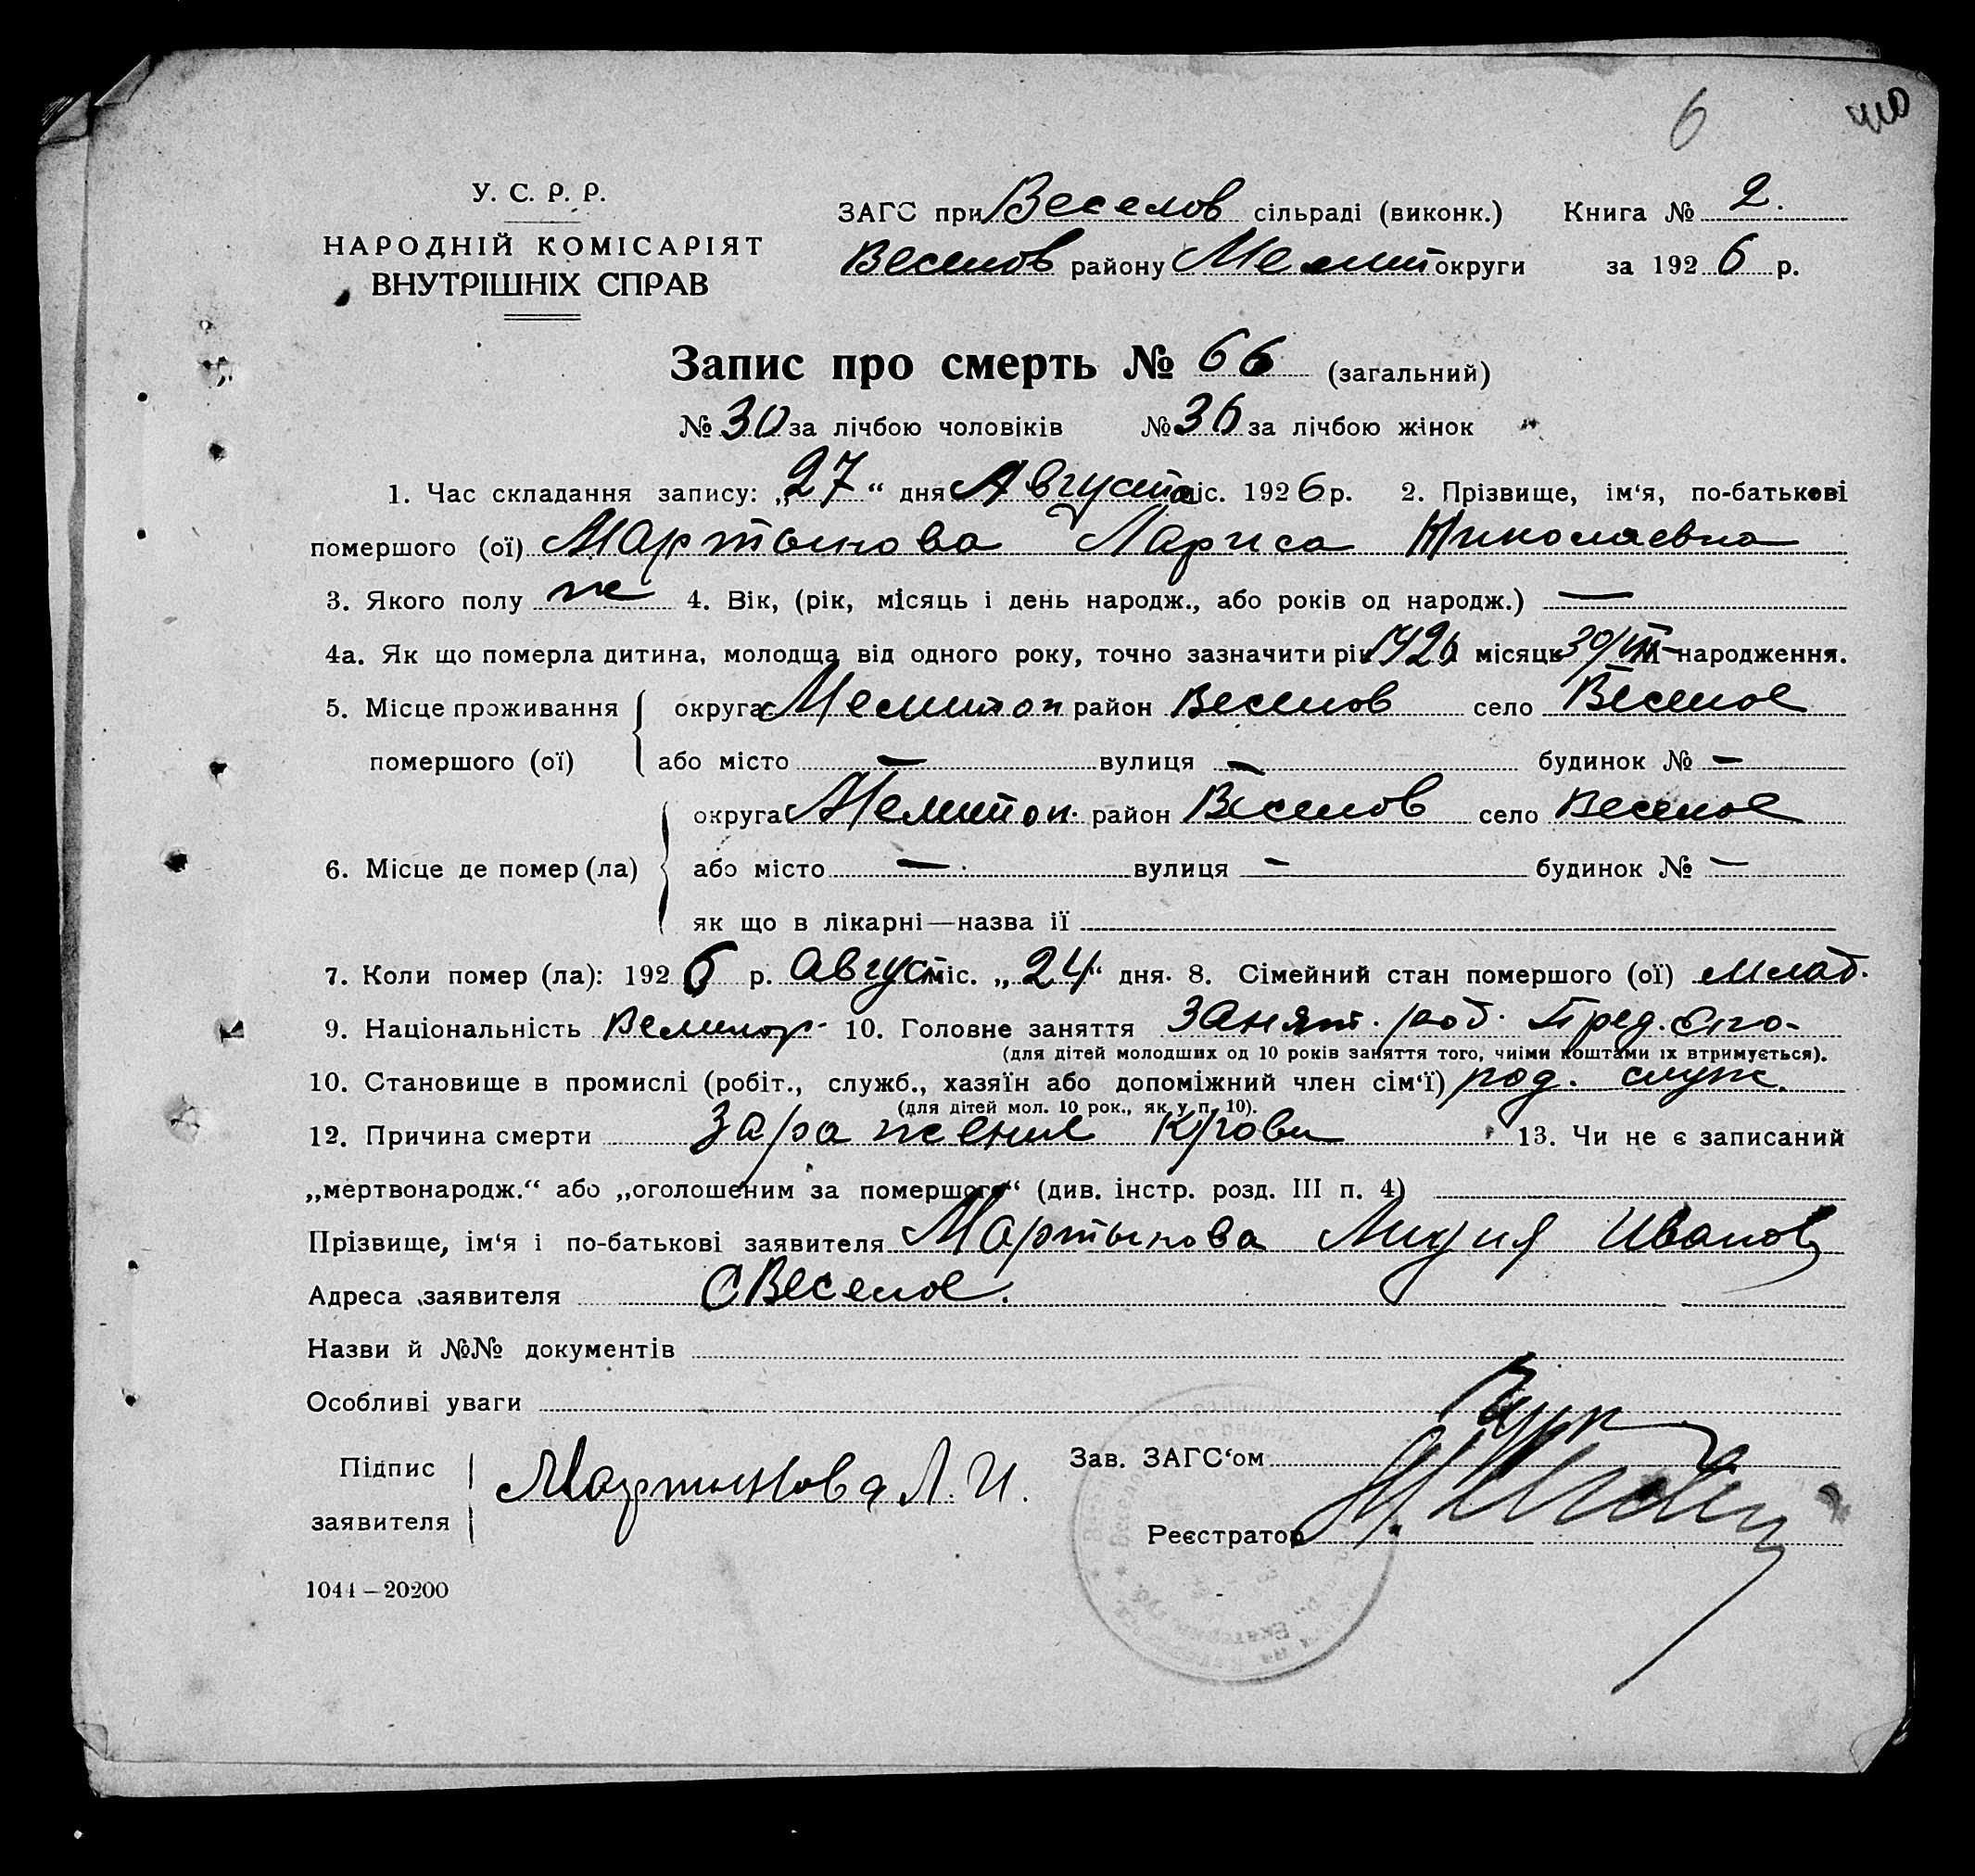 6
У. С. Р. Р.
НАРОДНІЙ КОМІСАРІЯТ
ВНУТРІШНІХ СПРАВ
ЗАГС при Веселов сільраді (виконк.) Книга № 2.
Веселов району Мелит округи за 1926 р.
Запис про смерть № 66 (загальний)
№ 30 за лічбою чоловіків № 36 за лічбою жінок
1. Час складання запису: „27“ дня Августа міс. 1926 р. 2. Прізвище, ім‘я, по-батькові
помершого (ої) Мартынова Лариса Николаевна
3. Якого полу ж 4. Вік, (рік, місяць і день народж., або років од народж.) —
4а. Як що померла дитина, молодща від одного року, точно зазначити рік 1926 місяць 30/VII народження.
5. Місце проживання округа Мелитоп район Веселов село Веселое
помершого (ої) або місто — вулиця — будинок № —
округа Мелитоп. район Веселов село Веселое
6. Місце де помер (ла) або місто — вулиця — будинок № —
як що в лікарні—назва ії
7. Коли помер (ла): 1926 р. Август міс. „24“ дня. 8. Сімейний стан помершого (ої) млад.
9. Національність Великор. 10. Головне заняття Занят. род. Пред.
(для дітей молодших од 10 років заняття того, чиіми коштами іх втримується).
10. Становище в промислі (робіт., служб., хазяїн або допоміжний член сім‘ї) род. служ.
(для дітей мол. 10 рок., як у п. 10).
12. Причина смерти Заражение крови 13. Чи не є записаний
„мертвонародж.“ або „оголошеним за помершого“ (див. інстр. розд. III п. 4)
Прізвище, ім‘я і по-батькові заявителя Мартынова Лидия Иванов
Адреса заявителя С Веселое.
Назви й №№ документів
Особливі уваги
Підпис
заявителя
Мартынова Л. И.
Зав. ЗАГС‘ом
Реєстратор
1044—20200